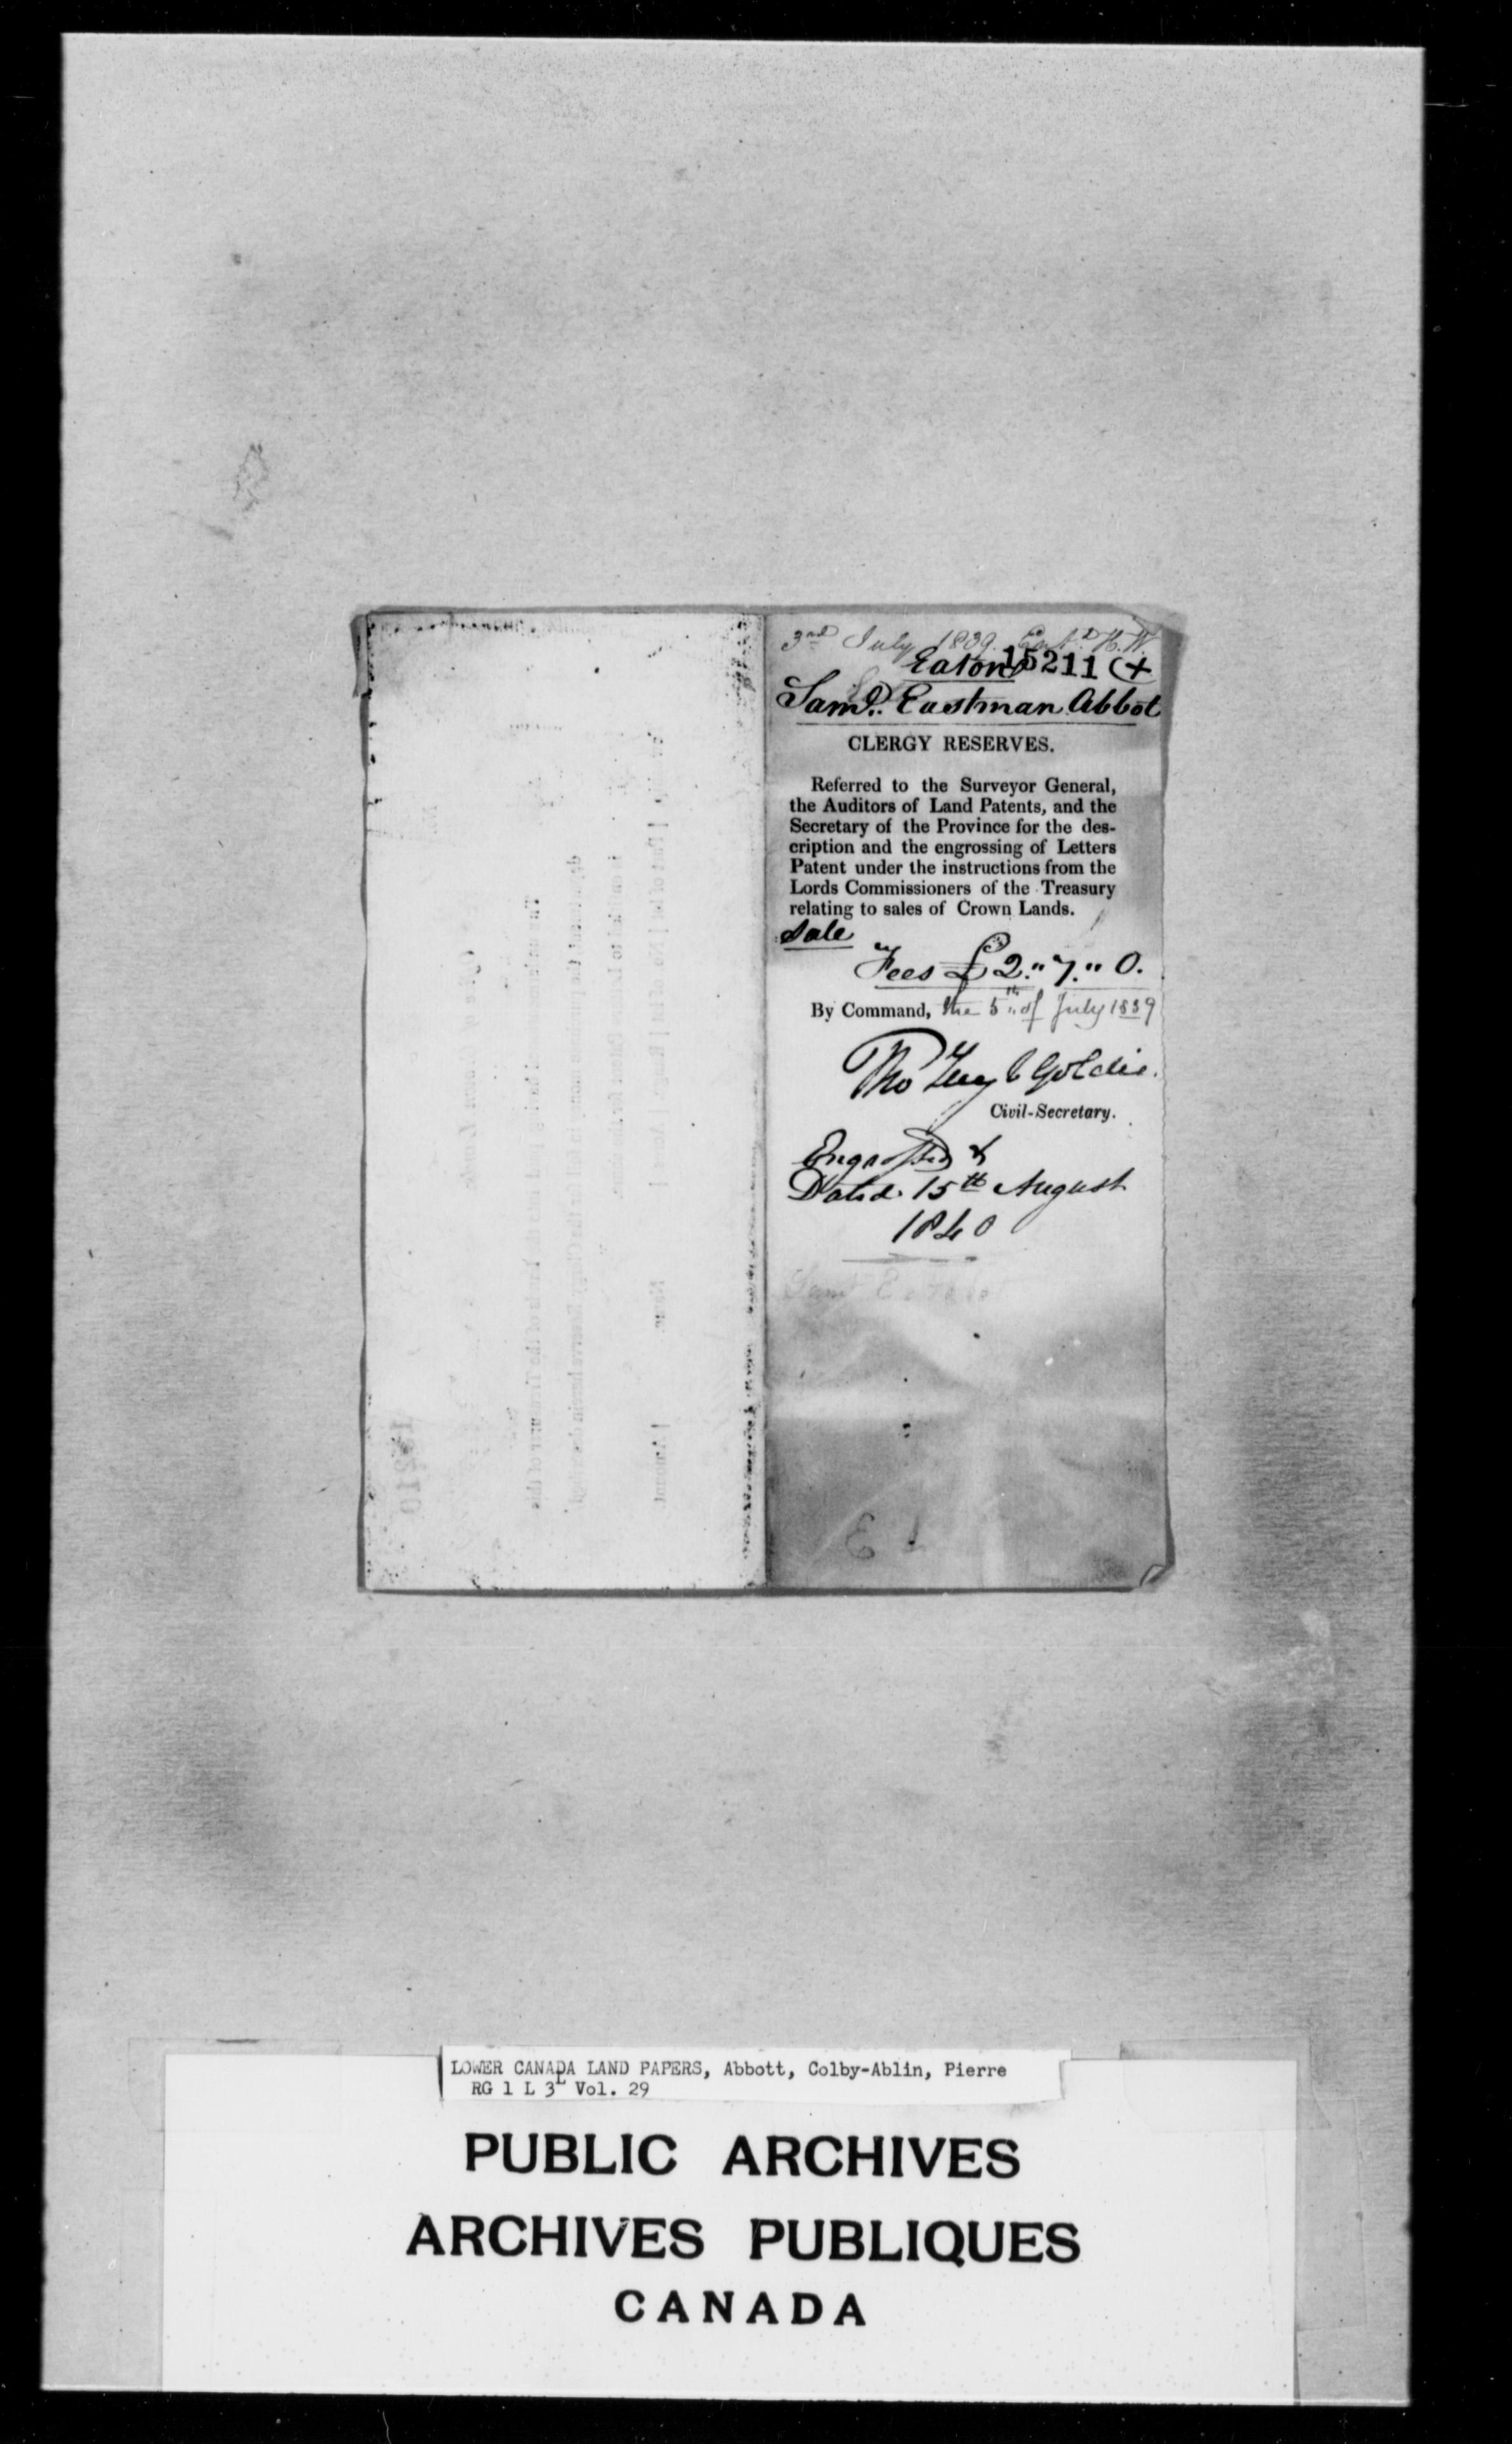 3rd July 1839. Ent.d H.W.
Eaton 15211 (+
Saml. Eastman Abbot
CLERGY RESERVES.
Referred to the Surveyor General,
the Auditors of Land Patents, and the
Secretary of the Province for the des-
cription and the engrossing of Letters
Patent under the instructions from the
Lords Commissioners of the Treasury
relating to sales of Crown Lands.
Sale
Fees £2.,,7.,,0.
By Command, the 5th of July 1839
Goldie.
Civil-Secretary.
Engrossed &
Dated. 15th August
1840
LOWER CANADA LAND PAPERS, Abbott, Colby-Ablin, Pierre
RG 1 L 3L Vol. 29
PUBLIC ARCHIVES
ARCHIVES PUBLIQUES
CANADA